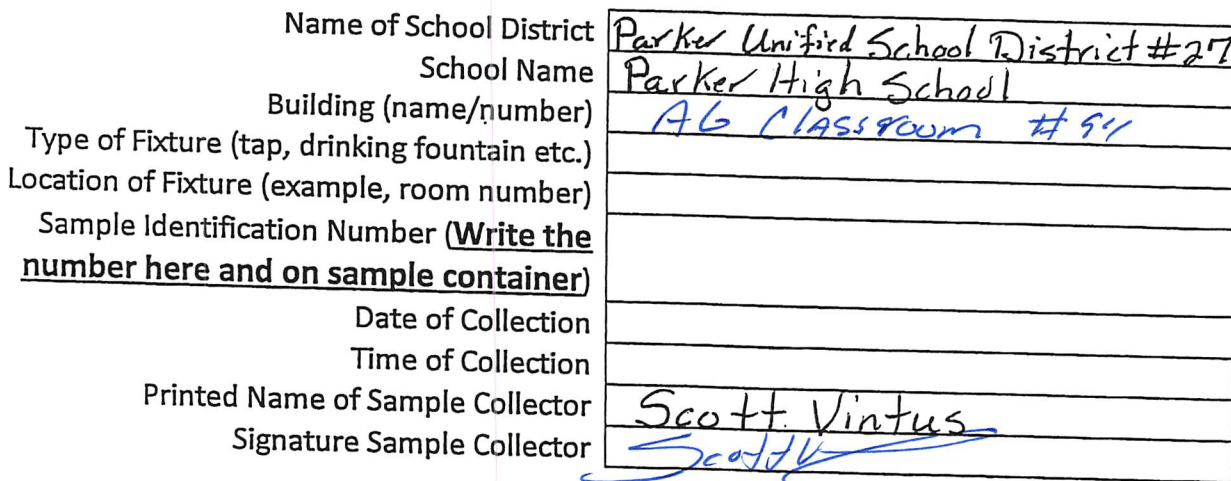 Name of School District Parker Unified School District #27
School Name Parker High School
Building (name/number) AG Classroom #94
Type of Fixture (tap, drinking fountain etc.)
Location of Fixture (example, room number)
Sample Identification Number (Write the
number here and on sample container)
Date of Collection
Time of Collection
Printed Name of Sample Collector Scott Vintus
Signature Sample Collector Scott V